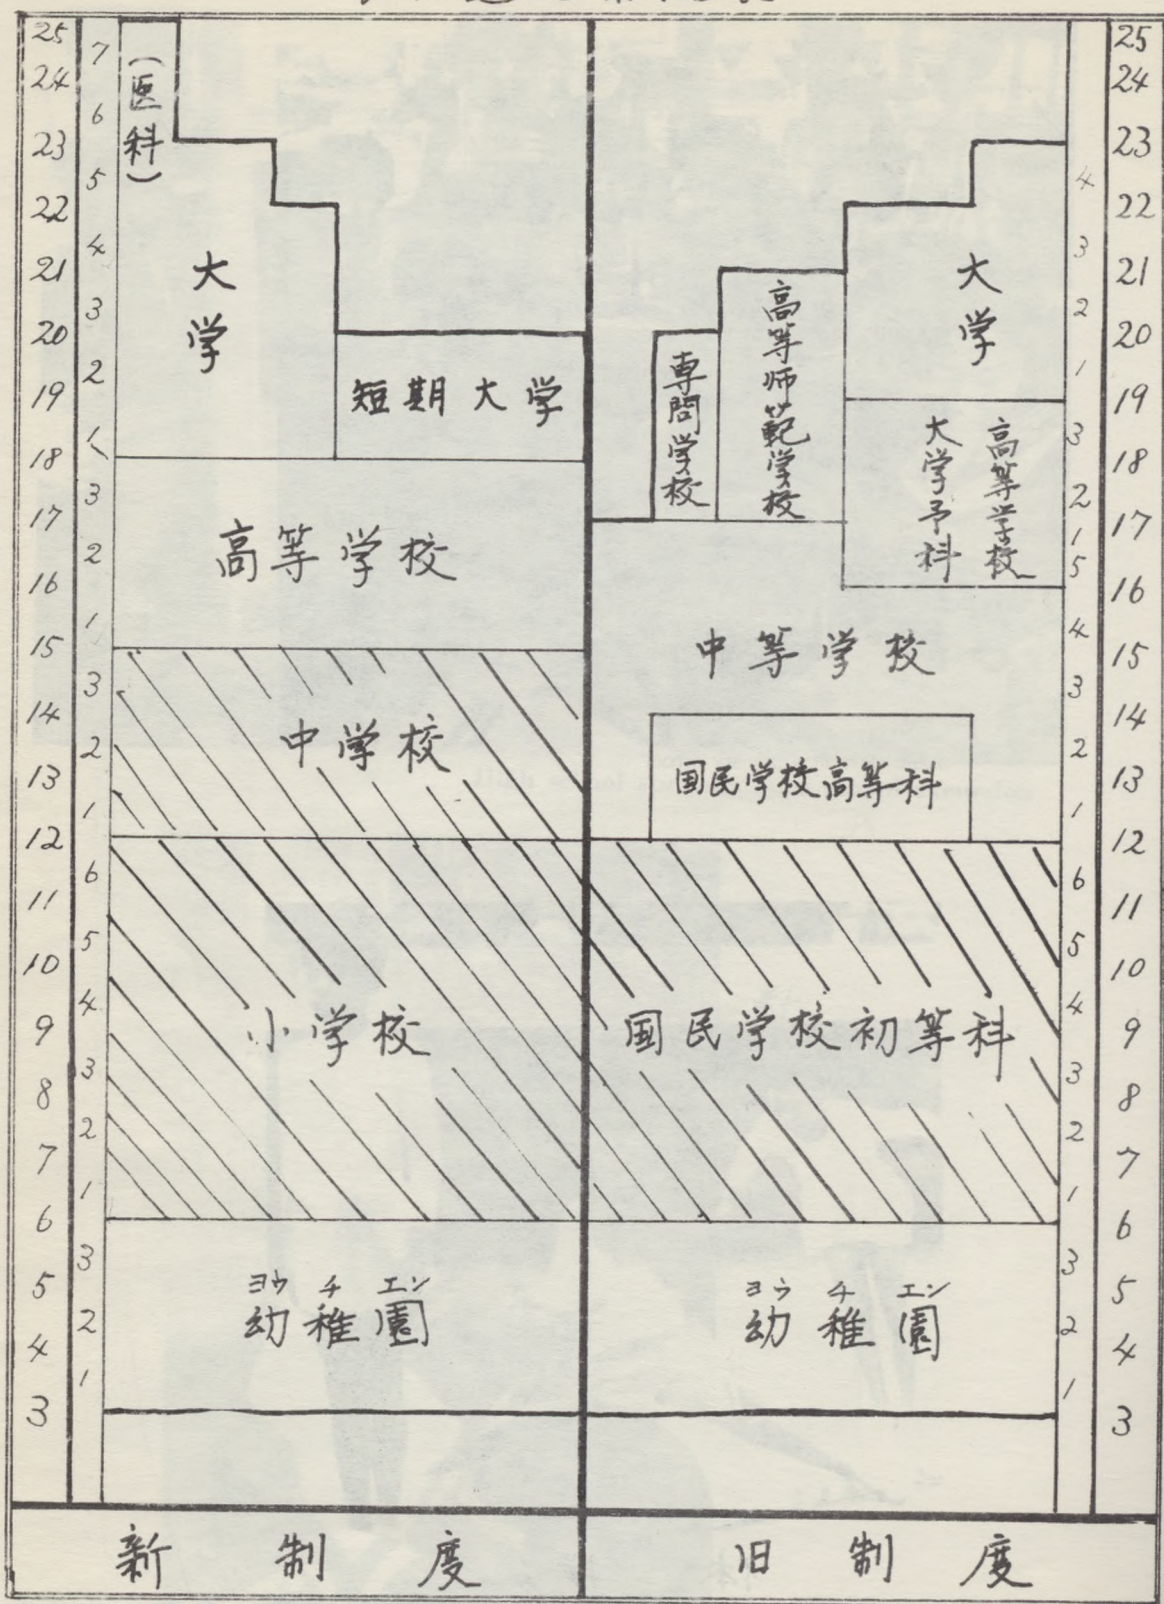 25
24
23
22
21
20
19
18
17
16
15
14
13
12
11
10
9
8
7
6
5
4
3
7
6
5
4
3
2
1
3
2
1
3
2
1
6
5
4
3
2
1
3
2
1
(医科)
大学
短期大学
高等学校
中学校
小学校
ヨウ チ エン
幼稚園
新制度
専門学校
高等師範学校
大学
高等学校
大学予科
中等学校
国民学校高等科
国民学校初等科
ヨウ チ エン
幼稚園
旧制度
4
3
2
1
3
2
1
5
4
3
2
1
6
5
4
3
2
1
3
2
1
25
24
23
22
21
20
19
18
17
16
15
14
13
12
11
10
9
8
7
6
5
4
3